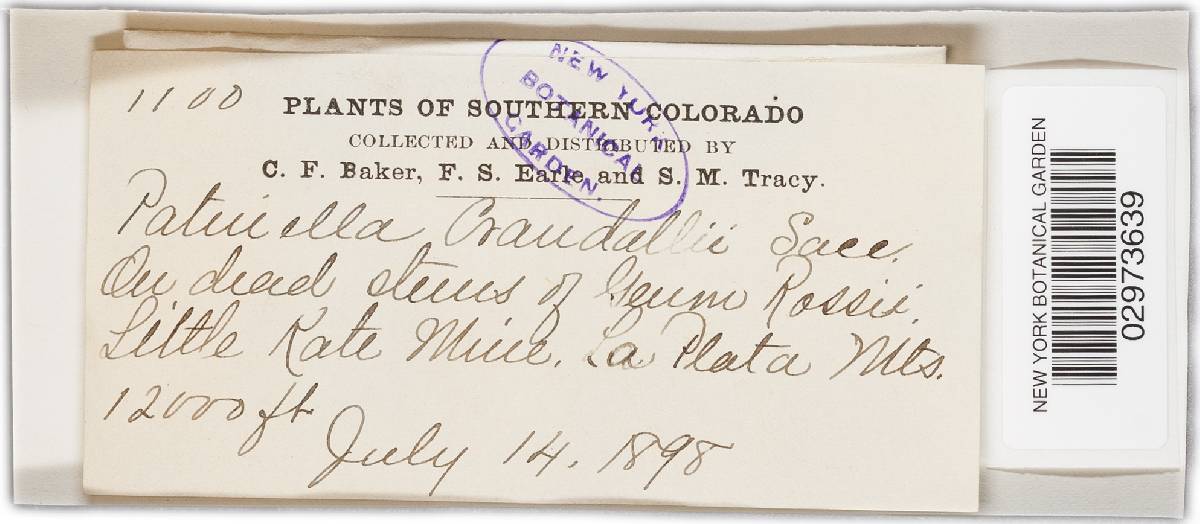 1100
PLANTS OF SOUTHERN COLORADO
COLLECTED AND DISTRIBUTED BY
C. F. Baker, F. S. Earle and S. M. Tracy.
NEW YORK
BOTANICAL
GARDEN.
Patinella Crandallii Sacc.
On dead stems of Geum Rossii.
Little Kate Mine. La Plata Mts.
12000 ft
July 14. 1898
NEW YORK BOTANICAL GARDEN
02973639